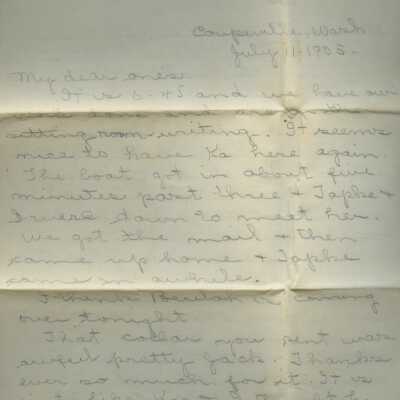 Coupeville, Wash.
July 11-1905.
My dear ones
It is 6-45 and we have our
and are in the
sitting room writing. It seems
nice to have Ka here again.
The boat got in about five
minutes past three & Taphe &
I were down to meet her.
We got the mail & then
came up home & Taphe
came in awhile.
I think Beulah is coming
over tonight
That collar you sent was
awful pretty Jack. Thanks
ever so much for it. It is
just like